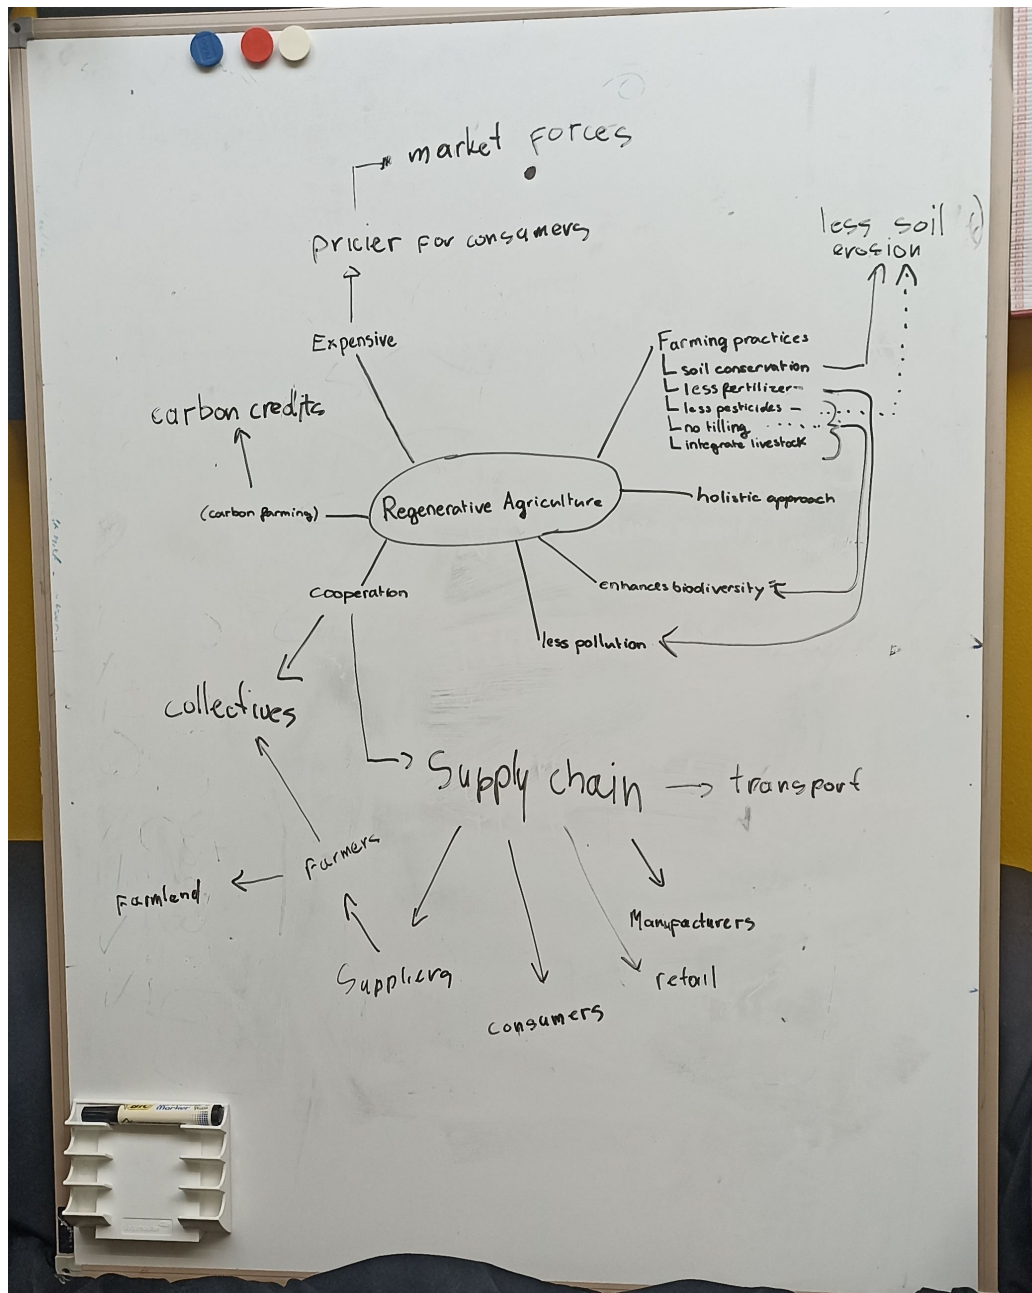 market forces
pricier for consumers
less soil
erosion
Expensive
Farming practices
soil conservation
less fertilizer
less pesticides
no tilling
integrate livestock
carbon credits
(carbon farming)
Regenerative Agriculture
holistic approach
cooperation
enhances biodiversity
less pollution
collectives
Supply chain
transport
Farmers
Farmlend
Manufacturers
Suppliers
retail
consumers
BIC Marker